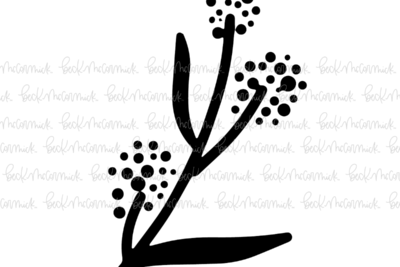 McCormick Beck McCormick Beck McCormick Beck McCormick Beck McCormick
Beck McCormick Beck McCormick Beck McCormick Beck McCormick
McCormick Beck McCormick Beck McCormick Beck McCormick Beck McCormick
Beck McCormick Beck McCormick Beck McCormick Beck McCormick
McCormick Beck McCormick Beck McCormick Beck McCormick Beck McCormick
Beck McCormick Beck McCormick Beck McCormick Beck McCormick